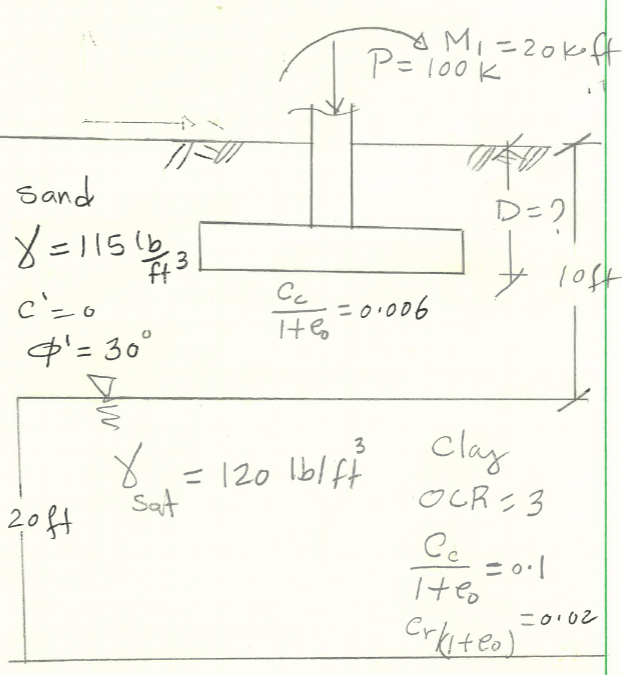 M₁ = 20 k·ft
P = 100 K
Sand
γ = 115 lb/ft³
c' = 0
φ' = 30°
D = ?
10 ft
Cc/(1+e₀) = 0.006
γsat = 120 lb/ft³
Clay
OCR = 3
20 ft
Cc/(1+e₀) = 0.1
Cr/(1+e₀) = 0.02